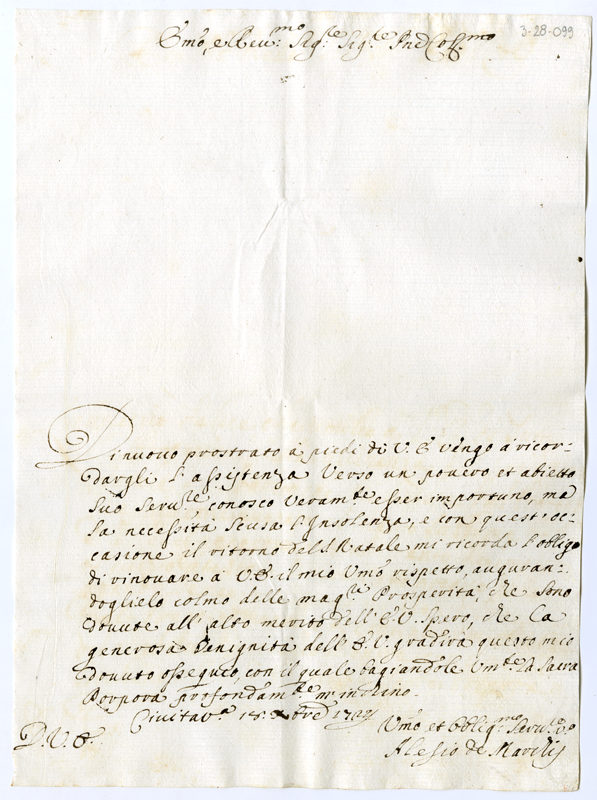 3-28-099
Em̃o, e Reu.mo Sig.re Sig.re Pñe Coll.mo
Di nuouo prostrato à piedi di V. E vengo à ricor-
dargli l'assistenza verso un pouero et abietto
suo seru.re, conosco veram.te esser importuno, mà
la necessità scusa l'insolenza, e con quest'oc-
casione il ritorno del S Natale mi ricorda l'obligo
di rinouare à V.E. il mio Vmõ rispetto, auguran-
doglielo colmo delle mag.ri Prosperità, che sono
douute all'alto merito dell'E.V. Spero, che la
generosa Benignità dell'E.V. gradirà questo mio
douuto ossequio, con il quale bagiandole Vm.te la Sacra
Porpora profondam.te m'inchino.
Ciuitau.a 15. Xbre
D.V.E.
Vmõ et Oblig.mo Seru.re
Alesio de